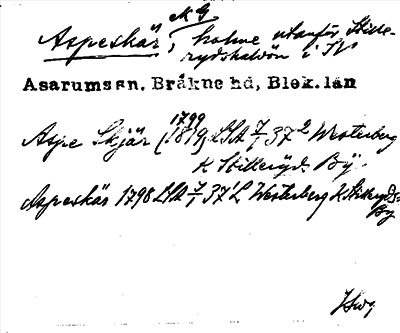 NG
Aspeskär, holme utanför Stille-
rydshalvön i SV
Asarumssn. Bräkne hd, Blek. län
1799
Aspe Skjär (1819) LSA 7/1 37² Westerberg
K Stilleryd By.
Aspeskär 1798 LSA 7/1 37¹ L Westerberg K Stilleryds
By